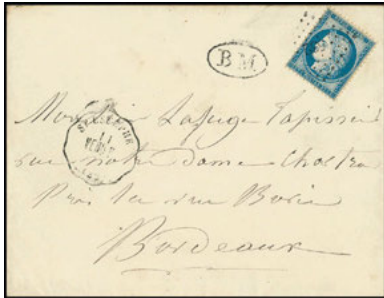 BM
Monsieur Lafuge Tapissier
rue notre Dame
Près la rue Borie
Bordeaux